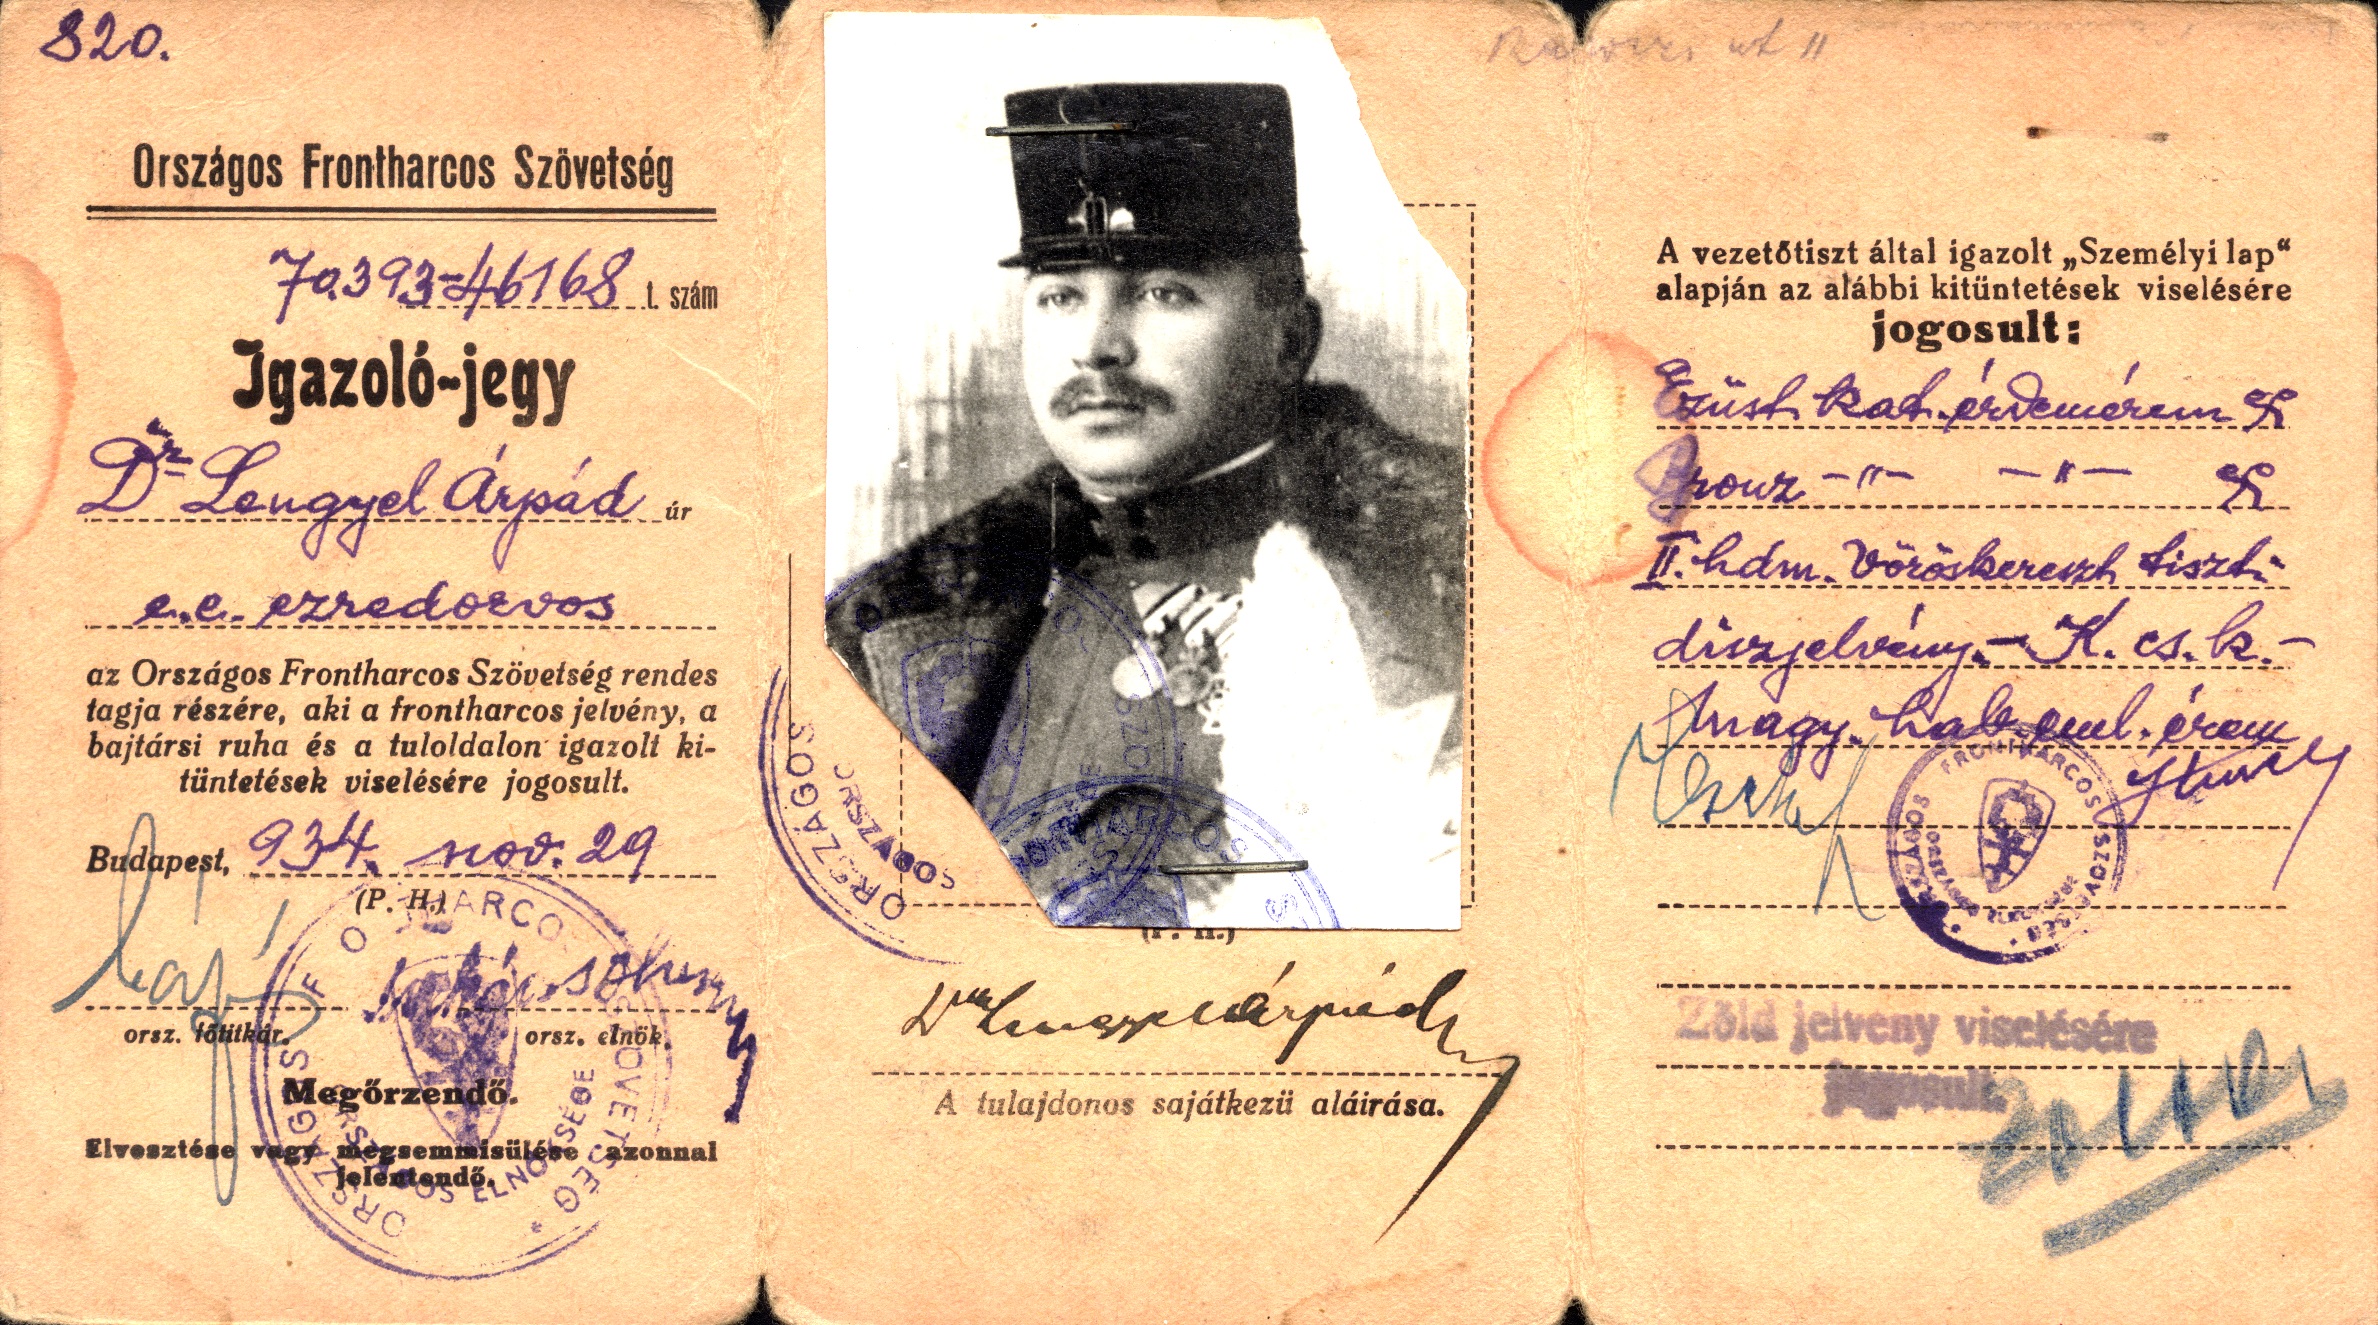 820.
Országos Frontharcos Szövetség
70.393-46168 t. szám
Igazoló-jegy
Dr Lengyel Árpád úr
e.e. ezredorvos
az Országos Frontharcos Szövetség rendes
tagja részére, aki a frontharcos jelvény, a
bajtársi ruha és a tuloldalon igazolt ki-
tüntetések viselésére jogosult.
Budapest, 934. nov. 29
(P. H.)
orsz. főtitkár. orsz. elnök.
Megőrzendő.
Elvesztése vagy megsemmisülése azonnal
jelentendő.
ORSZÁGOS FRONTHARCOS SZÖVETSÉG
ORSZÁGOS ELNÖKSÉGE
ORSZÁGOS
ORSZÁGOS
(P. H.)
Dr Lengyel Árpád
A tulajdonos sajátkezü aláirása.
út 11
A vezetőtiszt által igazolt „Személyi lap“
alapján az alábbi kitüntetések viselésére
jogosult:
Ezüst kat. érdemérem
Bronz -"- -"-
II. hdm. Vöröskereszt tiszti
diszjelvény.- K. cs. k.-
Magy. hab. eml. érem
ORSZÁGOS FRONTHARCOS SZÖVETSÉG
Zöld jelvény viselésére
jogosult.